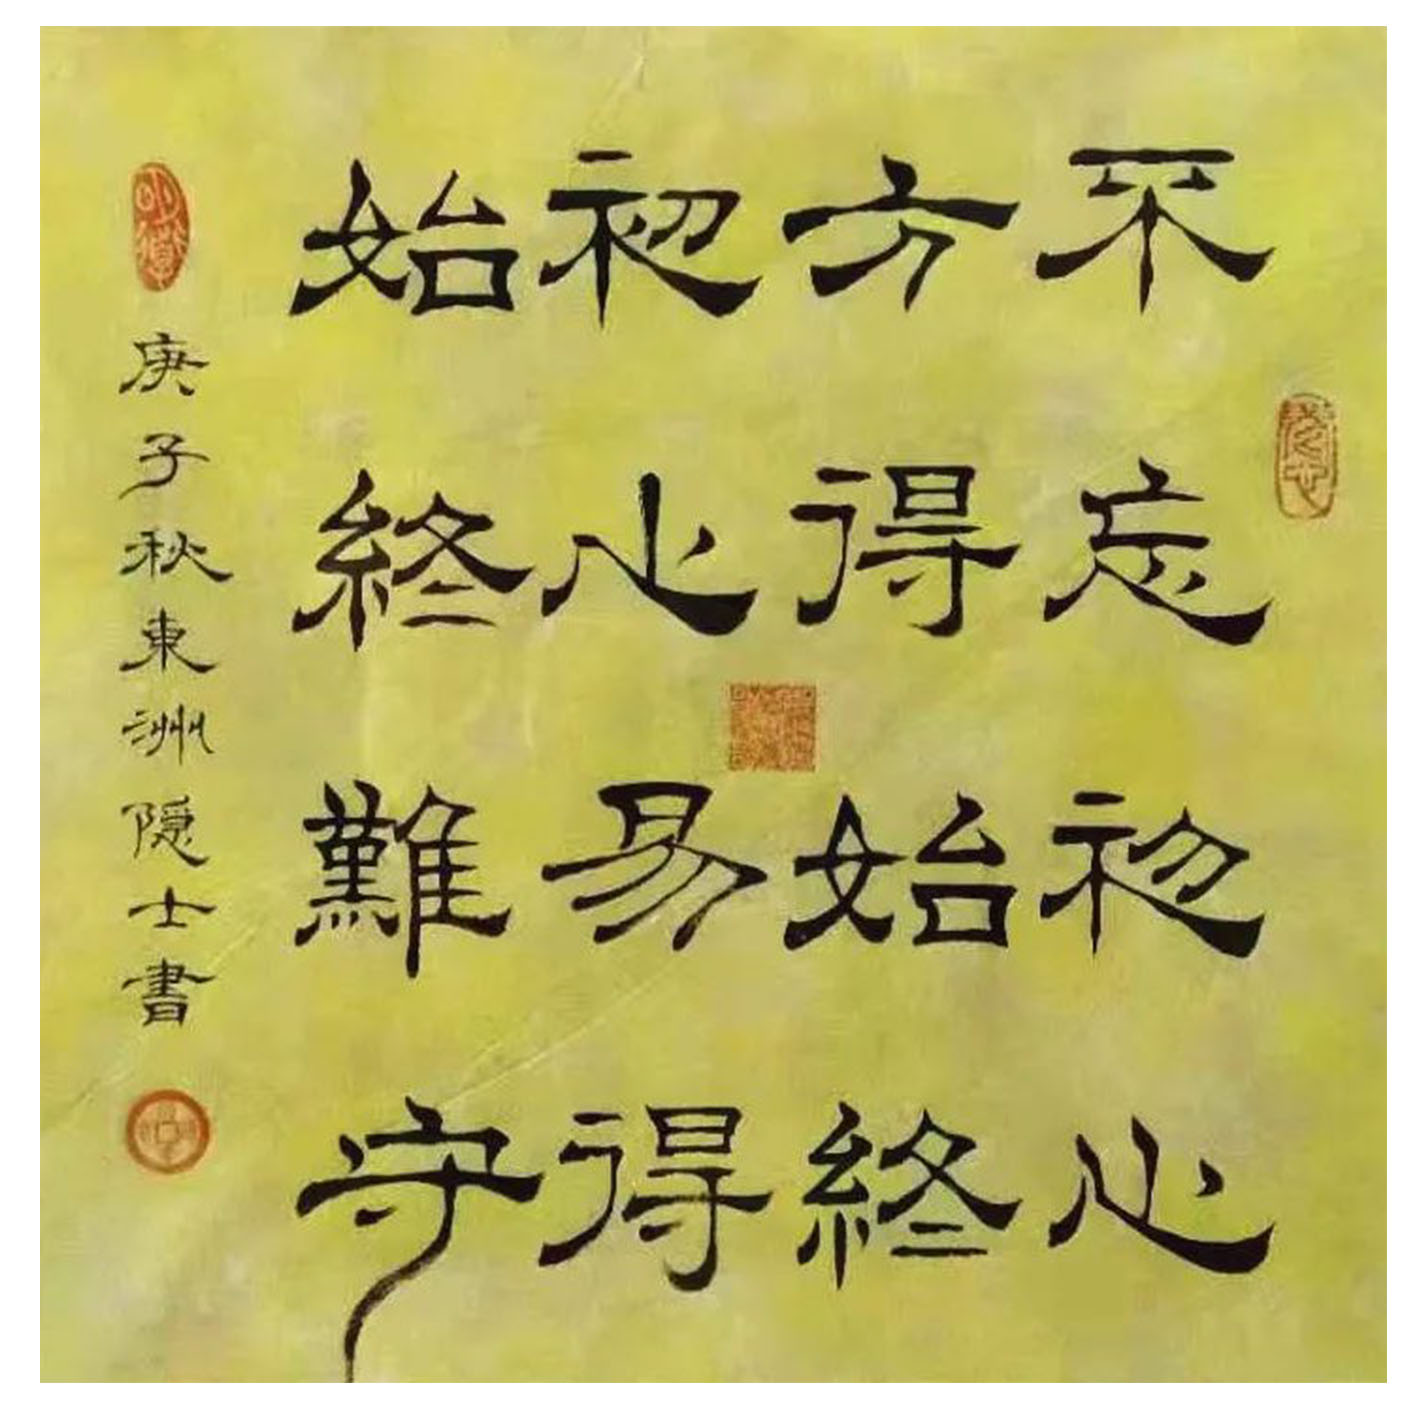 不忘初心
方得始終
初心易得
始終難守
庚子秋東洲隱士書